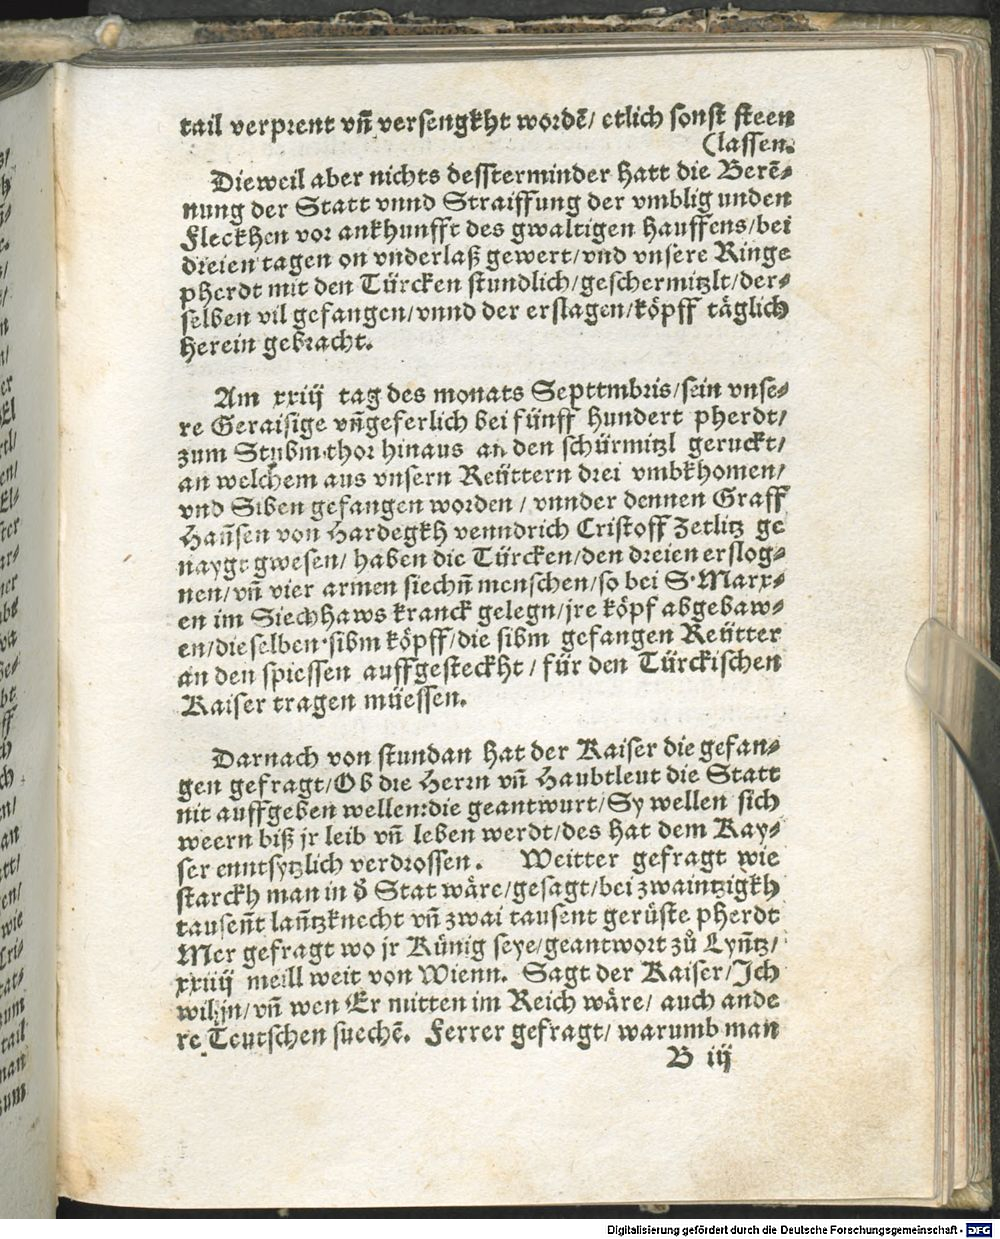 tail verprent vñ versengkht wordē/ etlich sonst steen
(lassen.
Dieweil aber nichts dessterminder hatt die Berē⸗
nung der Statt vnnd Straiffung der vmblig unden
Fleckhen vor ankhunfft des gwaltigen hauffens/bei
dreien tagen on vnderlaß gewert/vnd vnsere Ringe
pherdt mit den Türcken stundlich/geschermitzlt/der⸗
selben vil gefangen/vnnd der erslagen/köpff täglich
herein gebracht.
Am xxiij tag des monats Septtmbris/sein vnse⸗
re Geraisige vñgeferlich bei fünff hundert pherdt/
zum Stubm thor hinaus an den schürmitzl geruckt/
an welchem aus vnsern Reüttern drei vmbkhomen/
vnd Siben gefangen worden / vnnder dennen Graff
Hañsen von Hardegkh venndrich Cristoff Zetlitz ge
naygt gwesen/ haben die Türcken/den dreien erslog⸗
nen/vñ vier armen siechñ menschen/so bei S. Marx⸗
en im Siechhaws kranck gelegn/jre köpf abgehaw⸗
en/dieselben sibm köpff/die sibm gefangen Reütter
an den spiessen auffgesteckht / für den Türckischen
Kaiser tragen müessen.
Darnach von stundan hat der Kaiser die gefan⸗
gen gefragt/Ob die Herrn vñ Haubtleut die Statt
nit auffgeben wellen:die geantwurt/Sy wellen sich
weern biß jr leib vñ leben werdt/des hat dem Kay⸗
ser enntsytzlich verdrossen. Weitter gefragt wie
starckh man in d̄ Stat wäre/gesagt/bei zwaintzigkh
tauseñt lañtzknecht vñ zwai tausent gerüste pherdt
Mer gefragt wo jr Künig seye/geantwort zů Lyñtz/
xxiiij meill weit von Wienn. Sagt der Kaiser/Ich
wil jn/vñ wen Er mitten im Reich wäre/ auch ande
re Teutschen suechē. Ferrer gefragt/ warumb man
B iij
Digitalisierung gefördert durch die Deutsche Forschungsgemeinschaft - DFG